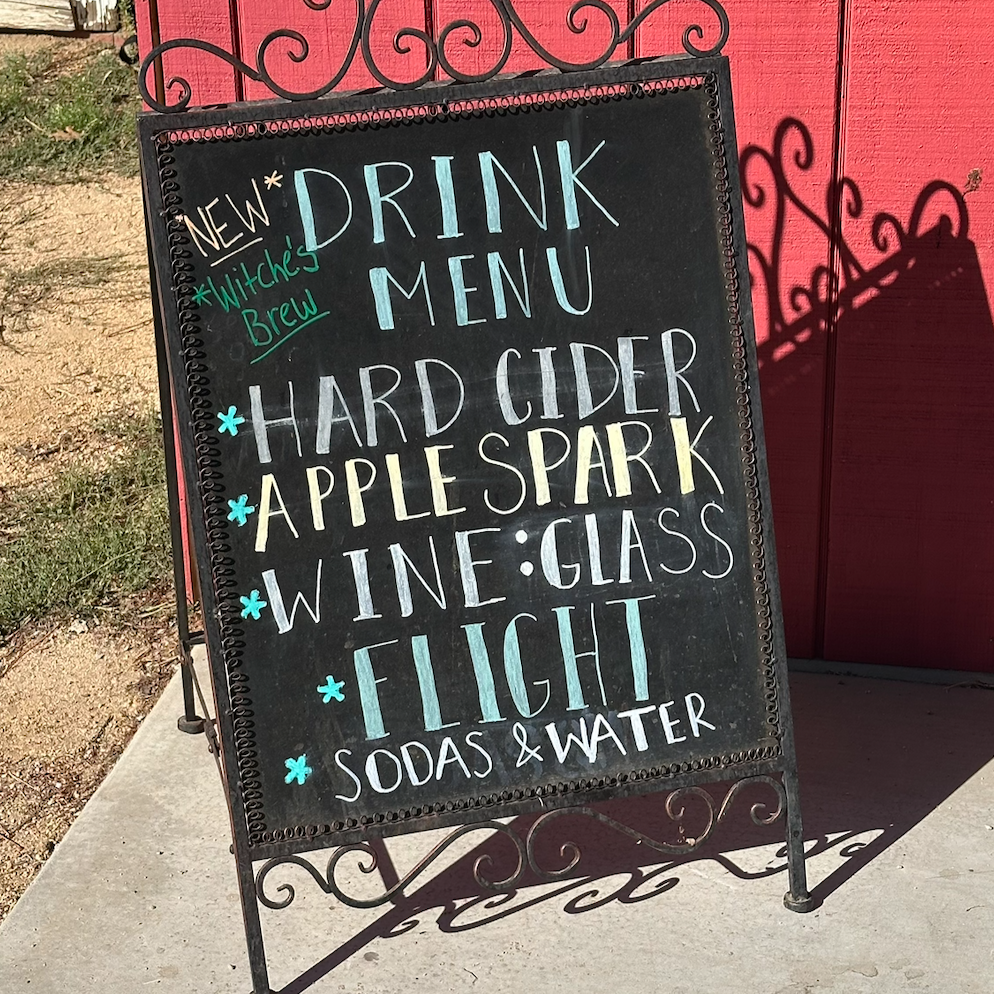 NEW*
*Witche's
Brew
DRINK
MENU
*HARD CIDER
*APPLE SPARK
*WINE:GLASS
*FLIGHT
*SODAS & WATER